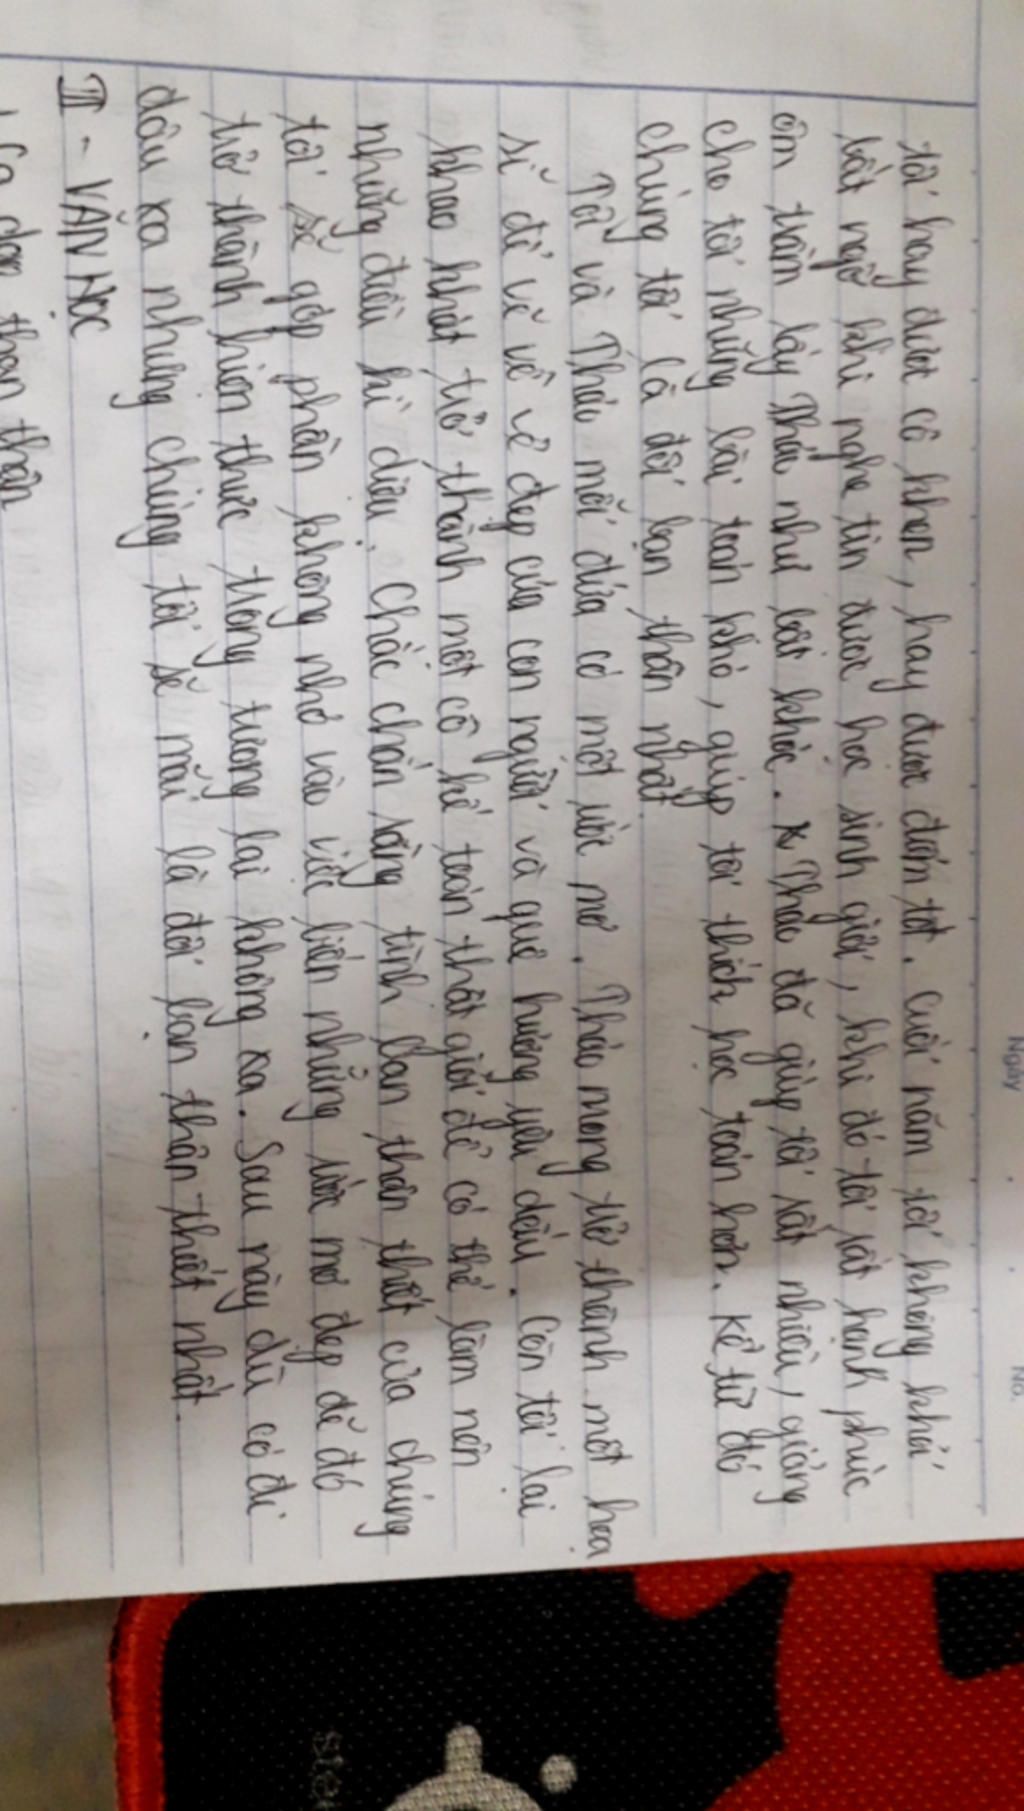 Ngày
No.
tôi hay được cô khen, hay được điểm tốt. Cuối năm tôi không khỏi
bất ngờ khi nghe tin được học sinh giỏi, khi đó tôi rất hạnh phúc
ôm trầm lấy Thảo như bật khóc. Thảo đã giúp tôi rất nhiều, giảng
cho tôi những bài toán khó, giúp tôi thích học toán hơn. Kể từ đó
chúng tôi là đôi bạn thân nhất.
Tôi và Thảo mỗi đứa có một ước mơ. Thảo mong trở thành một họa
sĩ để vẽ về vẻ đẹp của con người và quê hương yêu dấu. Còn tôi lại
khao khát trở thành một cô kế toán thật giỏi để có thể làm nên
những điều kì diệu. Chắc chắn rằng tình bạn thân thiết của chúng
tôi sẽ góp phần không nhỏ vào việc biến những ước mơ đẹp đẽ đó
trở thành hiện thực trong tương lai không xa. Sau này dù có đi
đâu xa nhưng chúng tôi sẽ mãi là đôi bạn thân thiết nhất.
III - VĂN HỌC
Ca dao than thân